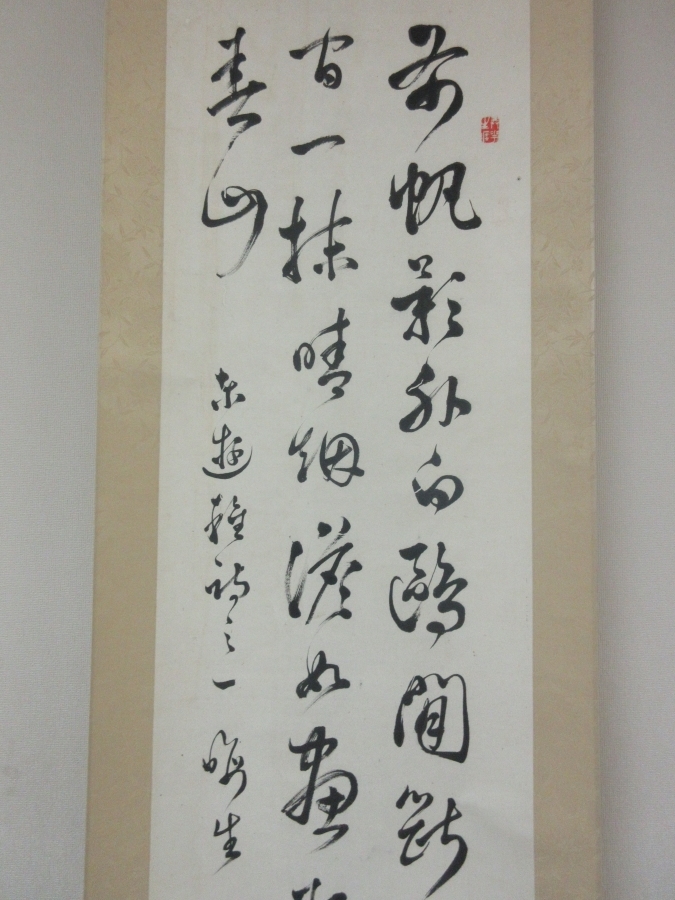 布帆影外白鷗閒斷
一抹晴烟澹如畫
春山
東遊雜詩之一 晦生